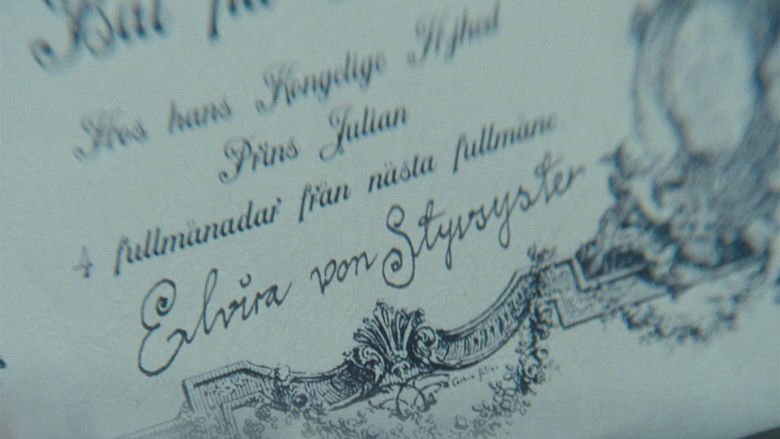 Bal
Hos hans Kongelige Höjhed
Prins Julian
4 fullmånadar från nästa fullmåne
Elvira von Styvsyster